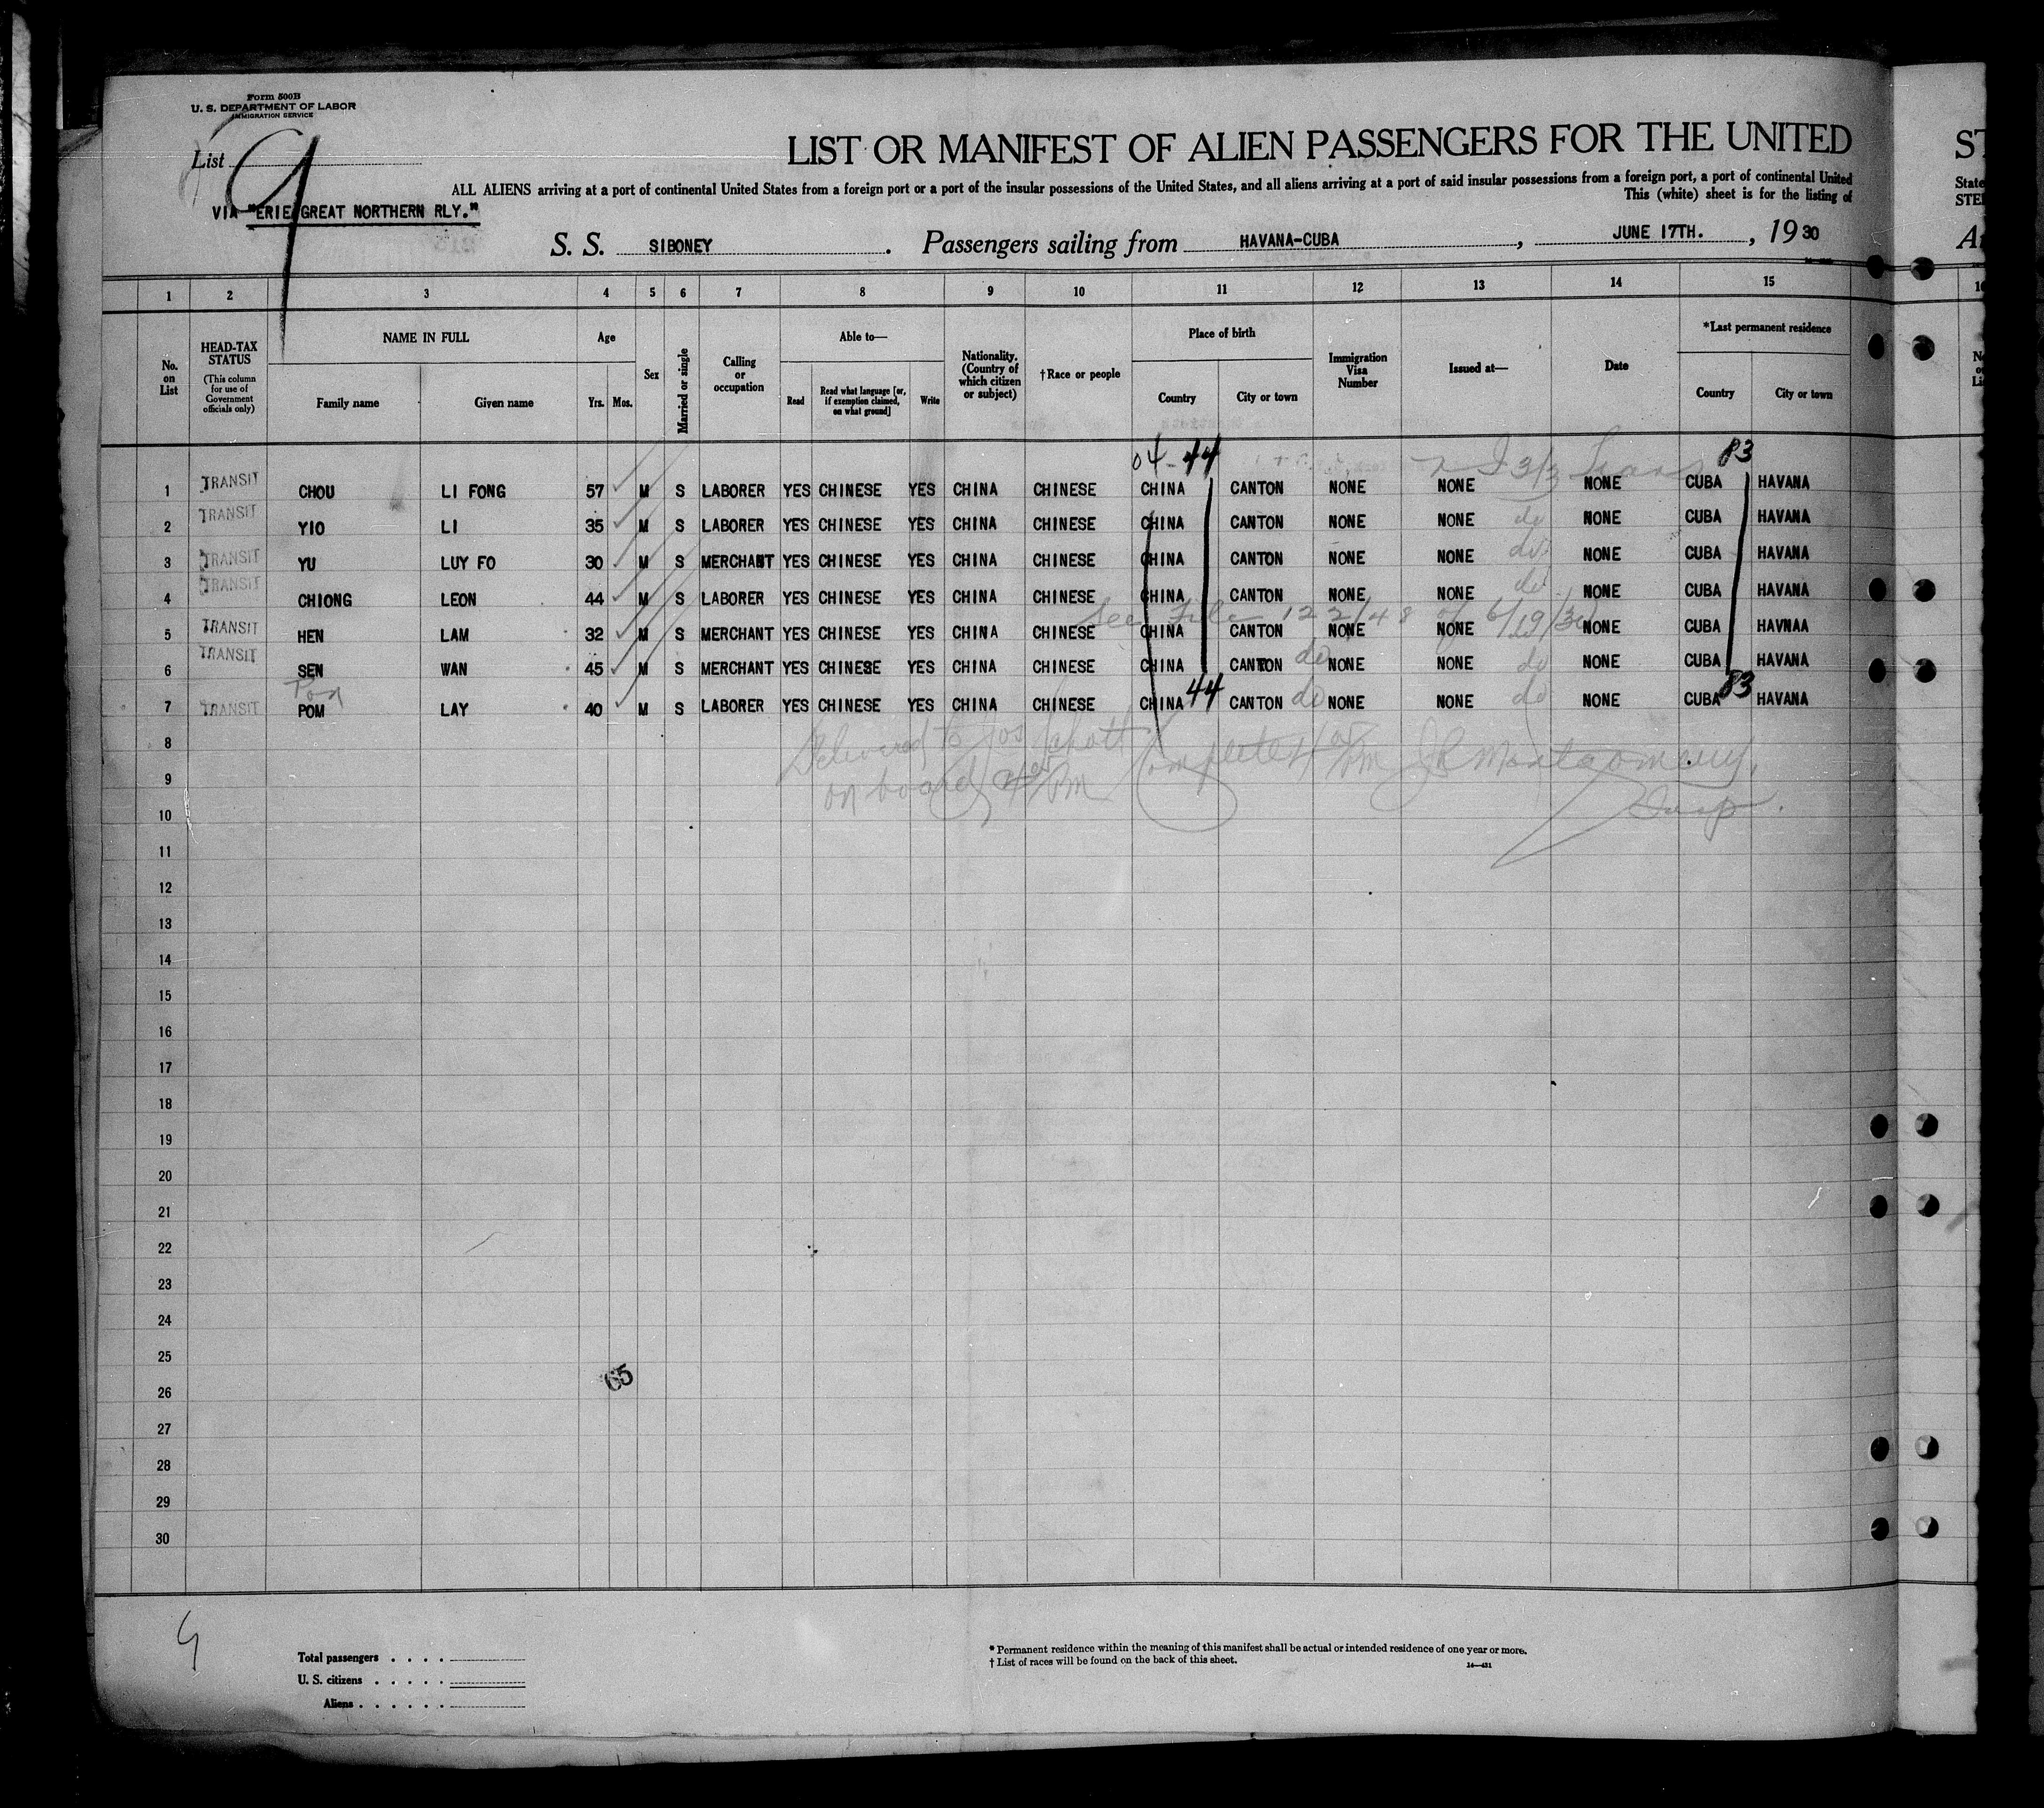 Form 500B
U. S. DEPARTMENT OF LABOR
IMMIGRATION SERVICE
List 9
VIA "ERIE/GREAT NORTHERN RLY."
LIST OR MANIFEST OF ALIEN PASSENGERS FOR THE UNITED
ST
ALL ALIENS arriving at a port of continental United States from a foreign port or a port of the insular possessions of the United States, and all aliens arriving at a port of said insular possessions from a foreign port, a port of continental United
State
This (white) sheet is for the listing of
STE
S. S. SIBONEY. Passengers sailing from HAVANA-CUBA, JUNE 17TH., 1930
1 2 3 4 5 6 7 8 9 10 11 12 13 14 15
No. on List
HEAD-TAX STATUS (This column for use of Government officials only)
NAME IN FULL
Family name Given name
Age
Yrs. Mos.
Sex
Married or single
Calling or occupation
Able to—
Read Read what language [or, if exemption claimed, on what ground] Write
Nationality. (Country of which citizen or subject)
†Race or people
Place of birth
Country City or town
Immigration Visa Number
Issued at—
Date
*Last permanent residence
Country City or town
04-44 83
1 TRANSIT CHOU LI FONG 57 M S LABORER YES CHINESE YES CHINA CHINESE CHINA CANTON NONE NONE NONE CUBA HAVANA
2 TRANSIT YIO LI 35 M S LABORER YES CHINESE YES CHINA CHINESE CHINA CANTON NONE NONE do NONE CUBA HAVANA
3 TRANSIT YU LUY FO 30 M S MERCHANT YES CHINESE YES CHINA CHINESE CHINA CANTON NONE NONE do NONE CUBA HAVANA
4 TRANSIT CHIONG LEON 44 M S LABORER YES CHINESE YES CHINA CHINESE CHINA CANTON NONE NONE do NONE CUBA HAVANA
See File 122/48 of 6/19/30
5 TRANSIT HEN LAM 32 M S MERCHANT YES CHINESE YES CHINA CHINESE CHINA CANTON NONE NONE NONE CUBA HAVNAA
6 TRANSIT SEN WAN 45 M S MERCHANT YES CHINESE YES CHINA CHINESE CHINA CANTON do NONE NONE do NONE CUBA HAVANA
Pon 44 83
7 TRANSIT POM LAY 40 M S LABORER YES CHINESE YES CHINA CHINESE CHINA CANTON do NONE NONE do NONE CUBA HAVANA
8
Delivered to Jos Complete JR Montgomery,
9
on board Insp.
10
11
12
13
14
15
16
17
18
19
20
21
22
23
24
25
65
26
27
28
29
30
Total passengers . . . .
U. S. citizens . . . . .
Aliens . . . . . .
* Permanent residence within the meaning of this manifest shall be actual or intended residence of one year or more.
† List of races will be found on the back of this sheet.
14—431